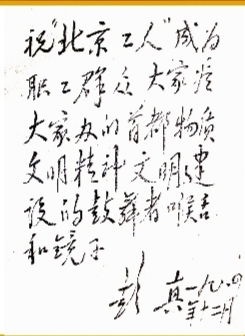 祝"北京工人"成为
职工群众大家爱
大家办的首都物质
文明精神文明建
设的鼓舞者喉舌
和镜子
彭真 一九八〇
年十二月